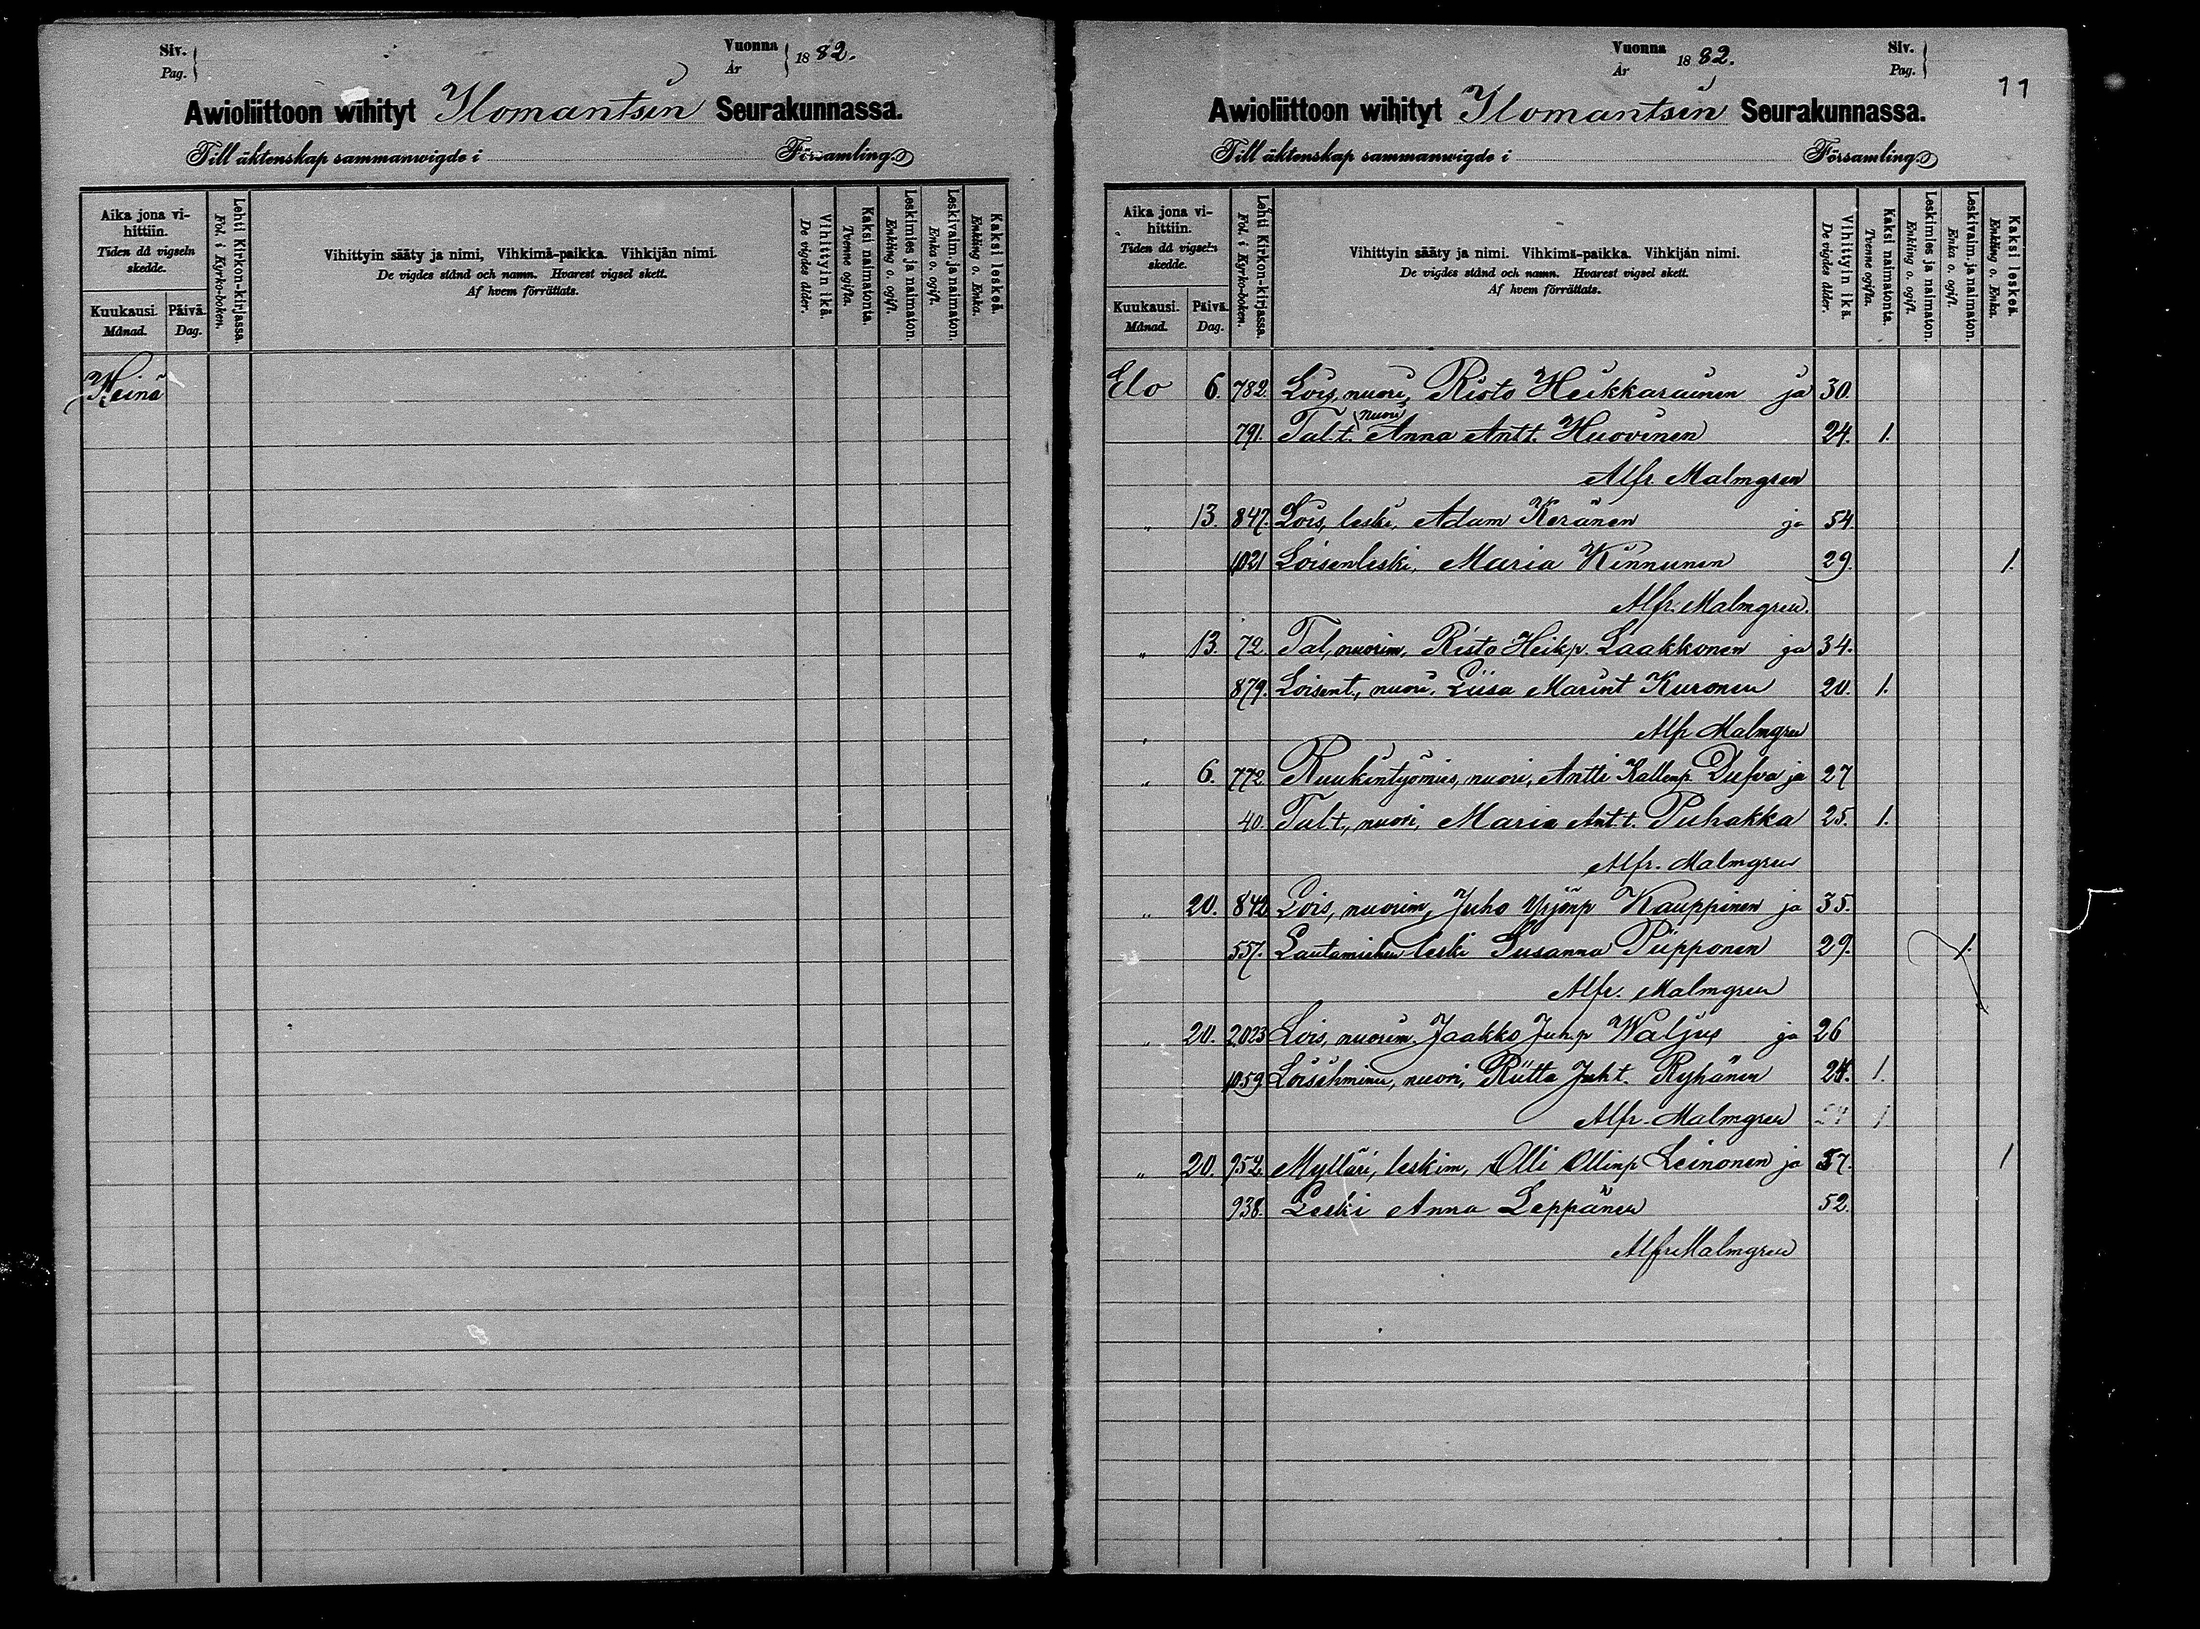 Siv.
Pag.
Vuonna
År
1882.
Awioliittoon wihityt Ilomantsin Seurakunnassa.
Till äktenskap sammanwigde i Församling.
Aika jona vi-
hittiin.
Tiden då vigseln
skedde.
Kuukausi.
Månad.
Päivä.
Dag.
Lehti Kirkon-kirjassa.
Fol. i Kyrko-boken.
Vihittyin sääty ja nimi, Vihkimä-paikka. Vihkijän nimi.
De vigdes stånd och namn. Hvarest vigsel skett.
Af hvem förrättats.
Vihittyin ikä.
De vigdes ålder.
Kaksi naimatonta.
Tvenne ogifta.
Leskimies ja naimaton.
Enkling o. ogift.
Leskivaim. ja naimaton.
Enka o. ogift.
Kaksi leskeä.
Enkling o. Enka.
Heinä
Vuonna
År
1882.
Siv.
Pag.
11
Awioliittoon wihityt Ilomantsin Seurakunnassa.
Till äktenskap sammanwigde i Församling.
Aika jona vi-
hittiin.
Tiden då vigseln
skedde.
Kuukausi.
Månad.
Päivä.
Dag.
Lehti Kirkon-kirjassa.
Fol. i Kyrko-boken.
Vihittyin sääty ja nimi. Vihkimä-paikka. Vihkijän nimi.
De vigdes stånd och namn. Hvarest vigsel skett.
Af hvem förrättats.
Vihittyin ikä.
De vigdes ålder.
Kaksi naimatonta.
Tvenne ogifta.
Leskimies ja naimaton.
Enkling o. ogift.
Leskivaim. ja naimaton.
Enka o. ogift.
Kaksi leskeä.
Enkling o. Enka.
Elo 6. 782. Lois, nuori, Risto Heikkarainen ja 30.
791. Tal.t. nuori Anna Antt. Huovinen 24. 1.
Alfr. Malmgren
" 13. 847. Lois, leski, Adam Keränen ja 54.
1021 Loisenleski, Maria Kinnunen 29. 1.
Alfr. Malmgren.
" 13. 72. Tal, nuorim, Risto Heikp. Laakkonen ja 34.
879. Loisent., nuori, Liisa Marint Kuronen 20. 1.
Alfr Malmgren
" 6. 772 Ruukintyömies, nuori, Antti Kallenp. Dufva ja 27
40. Tal.t., nuori, Maria Ant.t. Puhakka 25. 1.
Alfr. Malmgren
" 20. 842 Lois, nuorim, Juho Yrjönp Kauppinen ja 35.
557. Lautamiehen leski Susanna Piipponen 29. 1.
Alfr. Malmgren
" 20. 2023 Lois, nuorim. Jaakko Juh.p Waljus ja 26
1059 nuori, Riitta Juht. Ryhänen 24. 1.
Alfr. Malmgren 24 1
" 20. 952. Mylläri, leskim, Olli Ollinp Leinonen ja 57. 1
938. Leski Anna Leppänen 52.
Alfr Malmgren